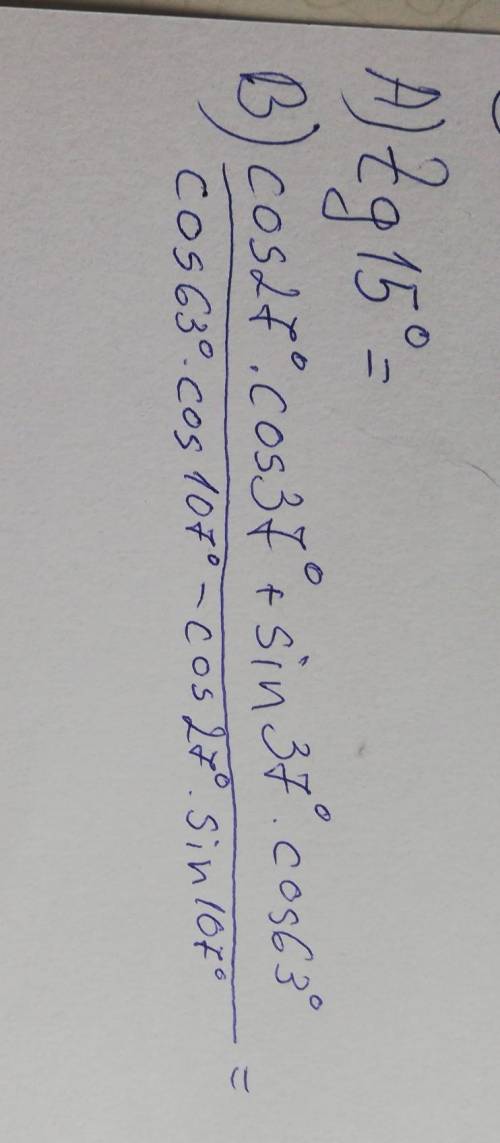 A) tg 15° =
B) cos27°·cos37° + sin37°·cos63°
cos63°·cos107° - cos27°·sin107° =